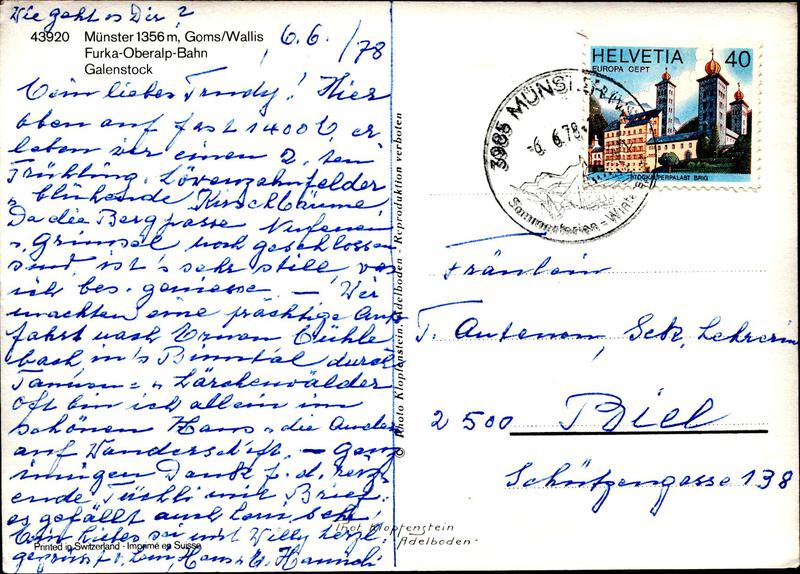 Wie geht es Dir?
43920 Münster 1356 m, Goms/Wallis
Furka-Oberalp-Bahn
Galenstock
6.6./78
Mein liebes Trudy! Hier
oben auf fast 1400 er
leben wir einen 2. ten
Frühling. Lövenzahnfelder
u. blühende Kirschbäume
Da die Bergpässe Nufenen
u. Grimsel noch geschlossen
sind, ist's sehr still, was
ich bes. geniesse. — Wir
machten eine prächtige Auf
fahrt nach Ernen Mühle
bach, in's Binntal durch
Tannen= u. Lärchenwälder
Oft bin ich allein im
schönen Haus u. die Andern
auf Wanderschaft. — Ganz
innigen Dank f. d. reiz
ende Tüchli mit Brief.
es gefällt auch
Mein liebes sei mit Willy herzl.
gegrüsst v. Hans u. Hanneli
Printed in Switzerland - Imprimé en Suisse
© Photo Klopfenstein, Adelboden - Reproduktion verboten
Phot Klopfenstein
Adelboden
HELVETIA 40
EUROPA CEPT
STOCKALPERPALAST BRIG
3985 MÜNSTER
-6. 6.78
Sommerferien = Winte
Fräulein
T. Autenen, Sek. Lehrerin
2500 Biel
Schützengasse 138